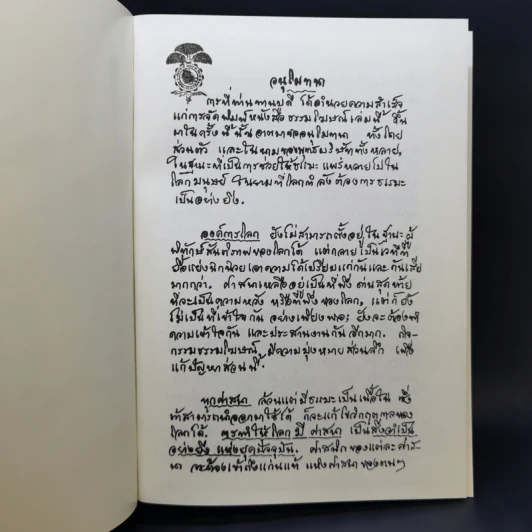 อนุโมทนา
การที่ท่านทานบดี ได้อำนวยความสำเร็จ
แก่การจัดพิมพ์หนังสือธรรมโฆษณ์เล่มนี้ ขึ้น
มาในครั้งนี้นั้น อาตมาขออนุโมทนา ทั้งโดย
ส่วนตัว และในนามของพุทธบริษัททั้งหลาย,
ในฐานะที่เป็นการช่วยให้ธรรมะ แพร่หลายไปใน
โลกมนุษย์ ในยามที่โลกกำลังต้องการธรรมะ
เป็นอย่างยิ่ง.
องค์การโลก ยังไม่สามารถตั้งอยู่ในฐานะผู้
พิทักษ์สันติภาพของโลกได้ แต่กลายเป็นเวทีที่
ยื้อแย่งฉกฉวยเอาความได้เปรียบแก่กันและกันเสีย
มากกว่า. ศาสนาเหลืออยู่เป็นที่พึ่ง ด่านสุดท้าย
ที่จะเป็นความหวัง หรือที่พึ่งของโลก, แต่ก็ยัง
ไม่เป็นที่เข้าใจกัน อย่างเพียงพอ; ยังจะต้องทำ
ความเข้าใจกัน และประสานงานกันอีกมาก. กิจ-
กรรมธรรมโฆษณ์ มีความมุ่งหมายส่วนลึก เพื่อ
แก้ปัญหาส่วนนี้.
ทุกศาสนา ล้วนแต่มีธรรมะเป็นเนื้อใน ซึ่ง
ถ้าสามารถนำออกมาใช้ได้ ก็จะแก้ไขวิกฤตกาลของ
โลกได้. การทำให้โลกมีศาสนา เป็นสิ่งจำเป็น
อย่างยิ่ง แห่งยุคปัจจุบัน. ศาสนิกของแต่ละศาส-
นา จะต้องเข้าถึงแก่นแท้ แห่งศาสนาของตนๆ